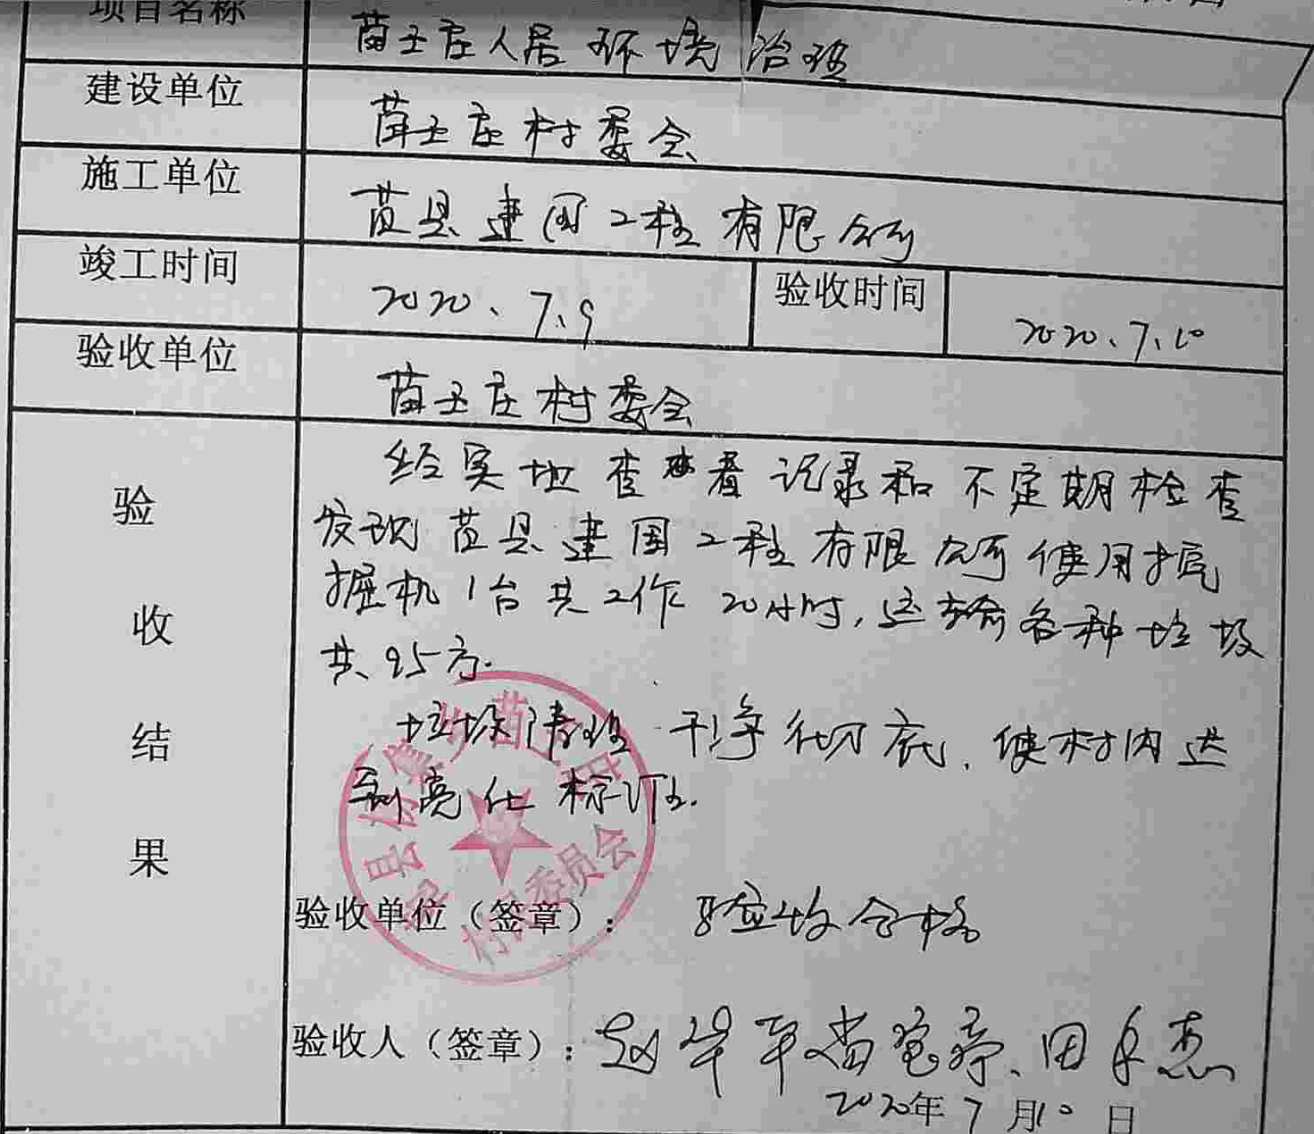 项目名称 苗王庄人居环境治理
建设单位 苗王庄村委会
施工单位 莒县建国工程有限公司
竣工时间 2020、7、9 验收时间 2020、7、10
验收单位 苗王庄村委会
验收结果
经实地查看记录和不定期检查
发现莒县建国工程有限公司使用挖
掘机1台共工作20小时,运输各种垃圾
共95方.
垃圾清理干净彻底、使村内达
到亮化标准.
村民委员会
验收单位(签章): 验收合格
验收人(签章):
2020年7月10日